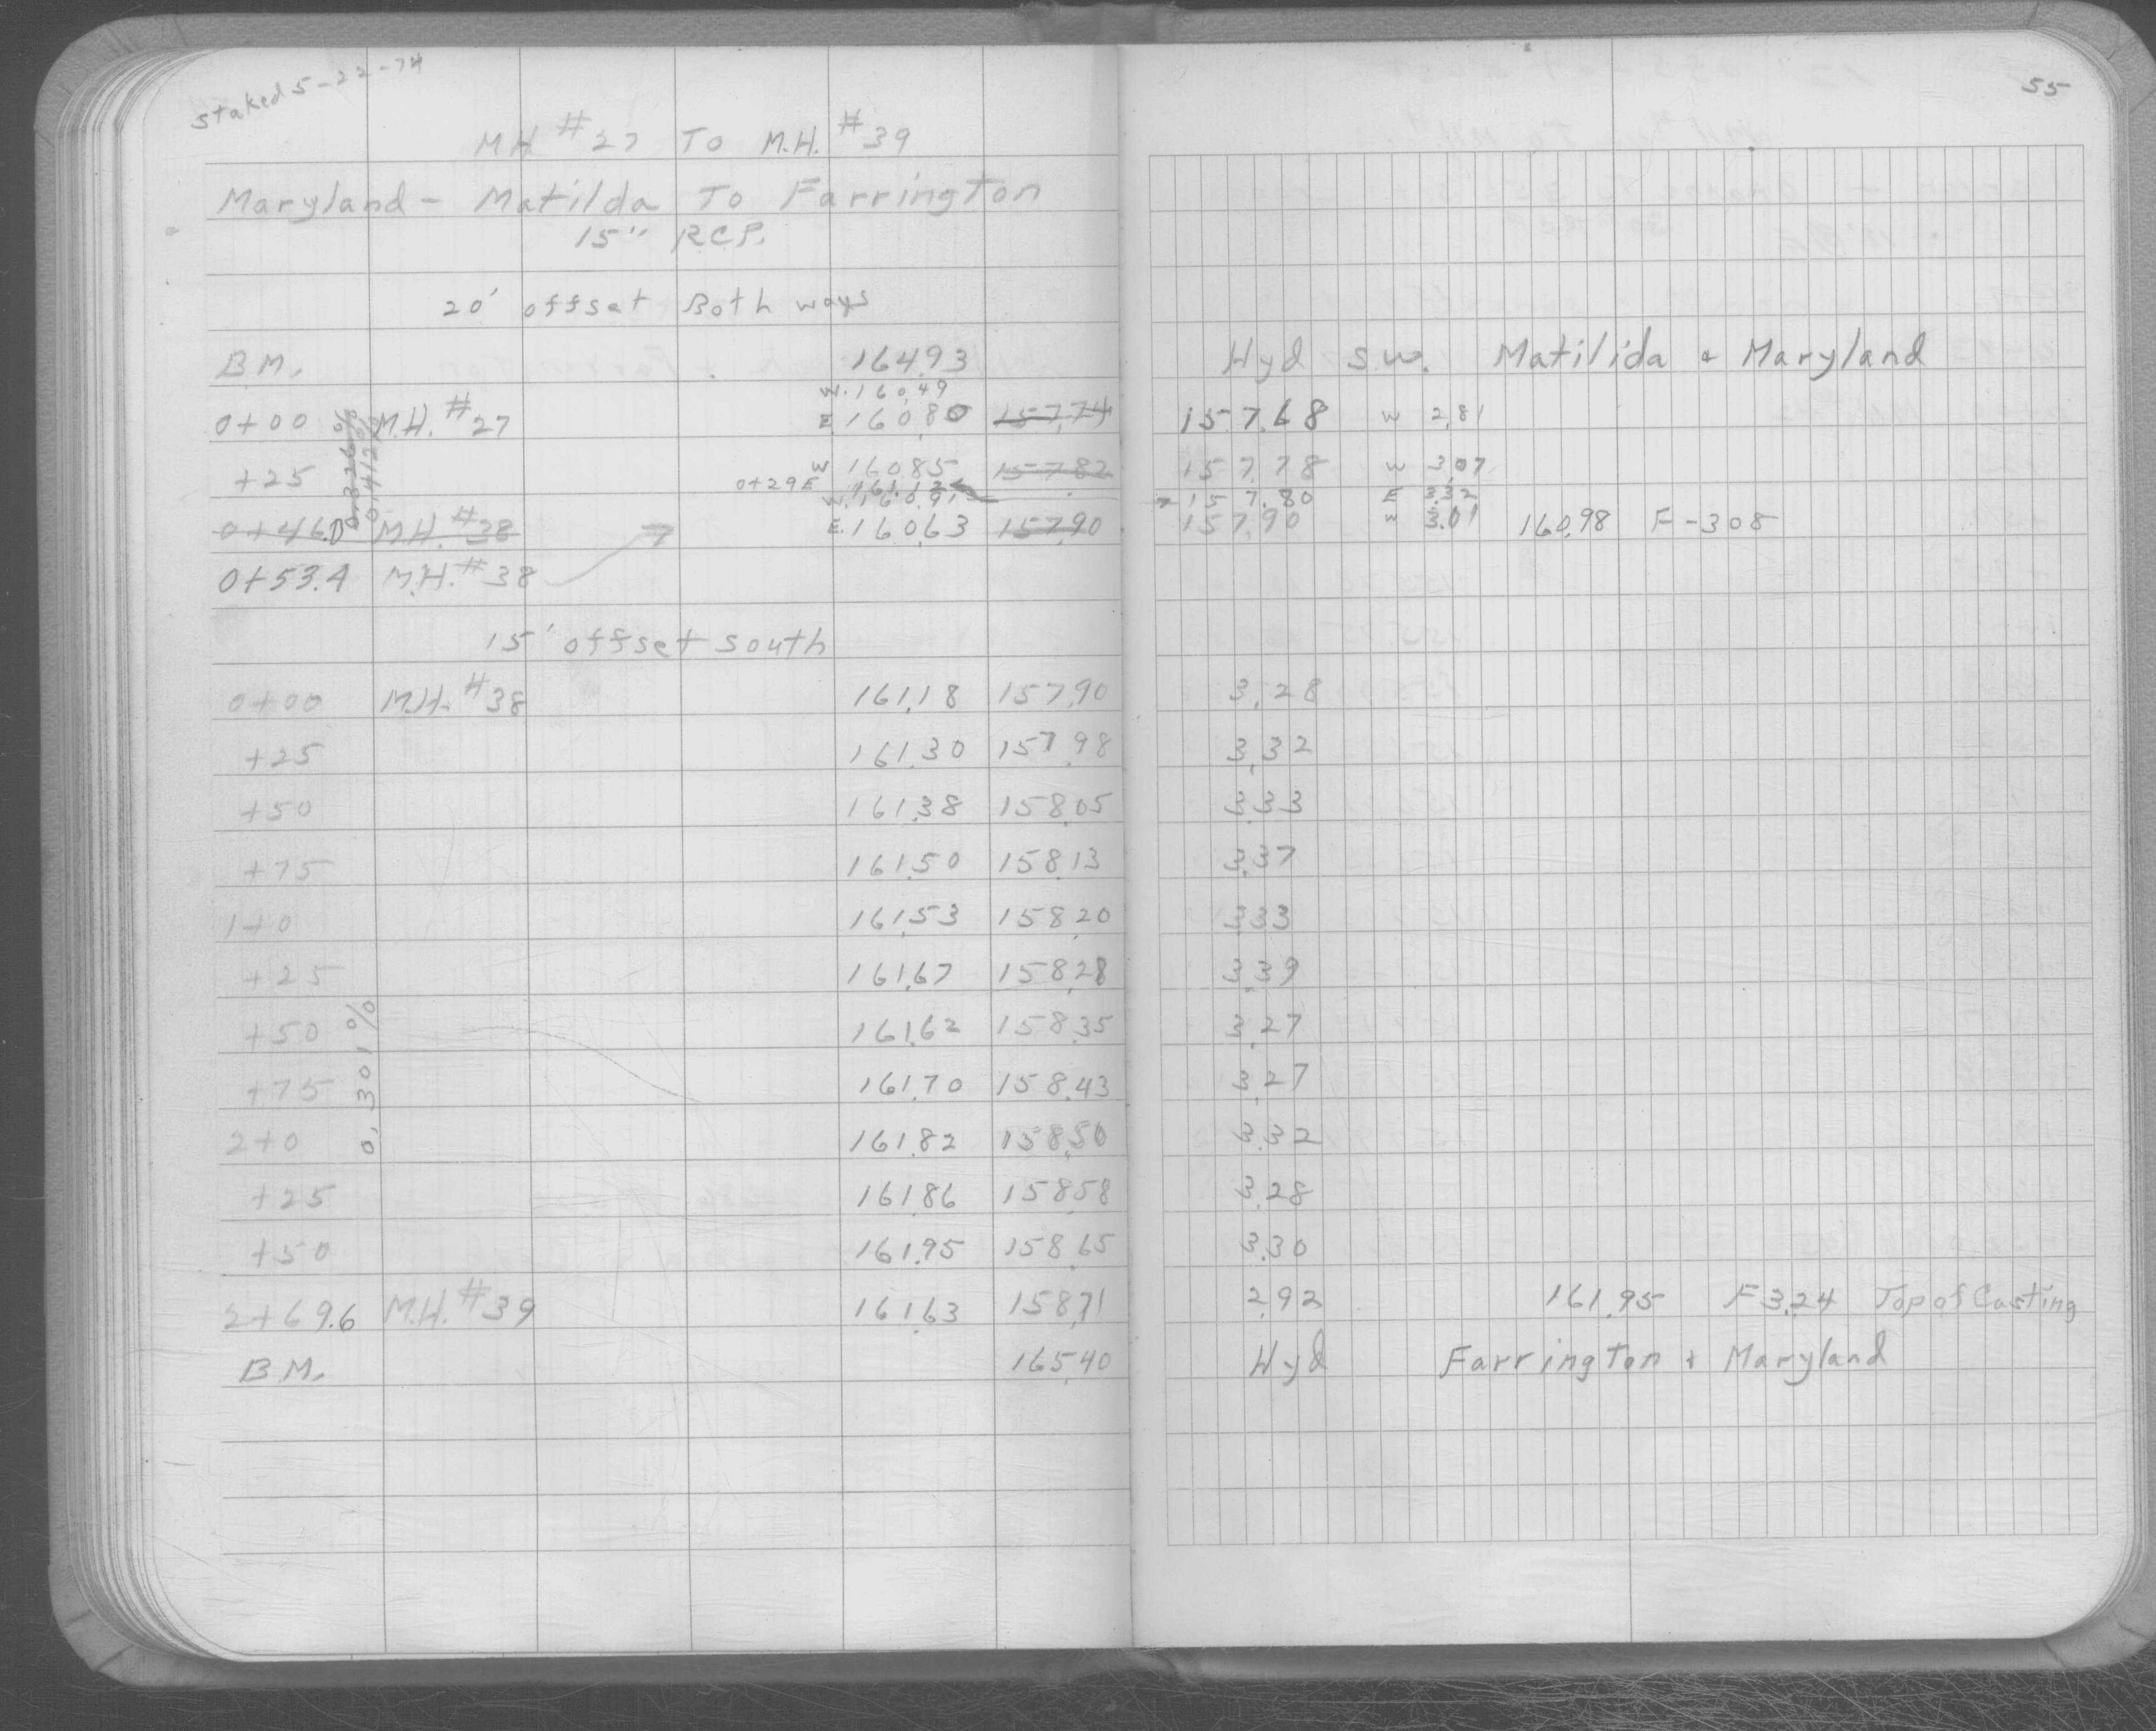 staked 5-22-74
55
MH #27 To M.H. #39
Maryland - Matilda To Farrington
15" RCP.
20' offset Both ways
B.M. 164.93 Hyd S.W. Matilida & Maryland
W. 160.49
0+00 M.H. #27 E. 160.80 157.74 157.68 W 2.81
0.326%
0.412%
+25 W 160.85 157.82 157.78 W 3.07
0+29E 161.12 157.80 E 3.32
W. 160.91 157.90 W 3.01 160.98 F-308
0+46.0 M.H. #38 E. 160.63 157.90
0+53.4 M.H. #38
15' offset South
0+00 M.H. #38 161.18 157.90 3.28
+25 161.30 157.98 3.32
+50 161.38 158.05 3.33
+75 161.50 158.13 3.37
1+0 161.53 158.20 3.33
+25 161.67 158.28 3.39
+50 161.62 158.35 3.27
0.301%
+75 161.70 158.43 3.27
2+0 161.82 158.50 3.32
+25 161.86 158.58 3.28
+50 161.95 158.65 3.30
2+69.6 M.H. #39 161.63 158.71 2.92 161.95 F3.24 Top of Casting
B.M. 165.40 Hyd Farrington & Maryland